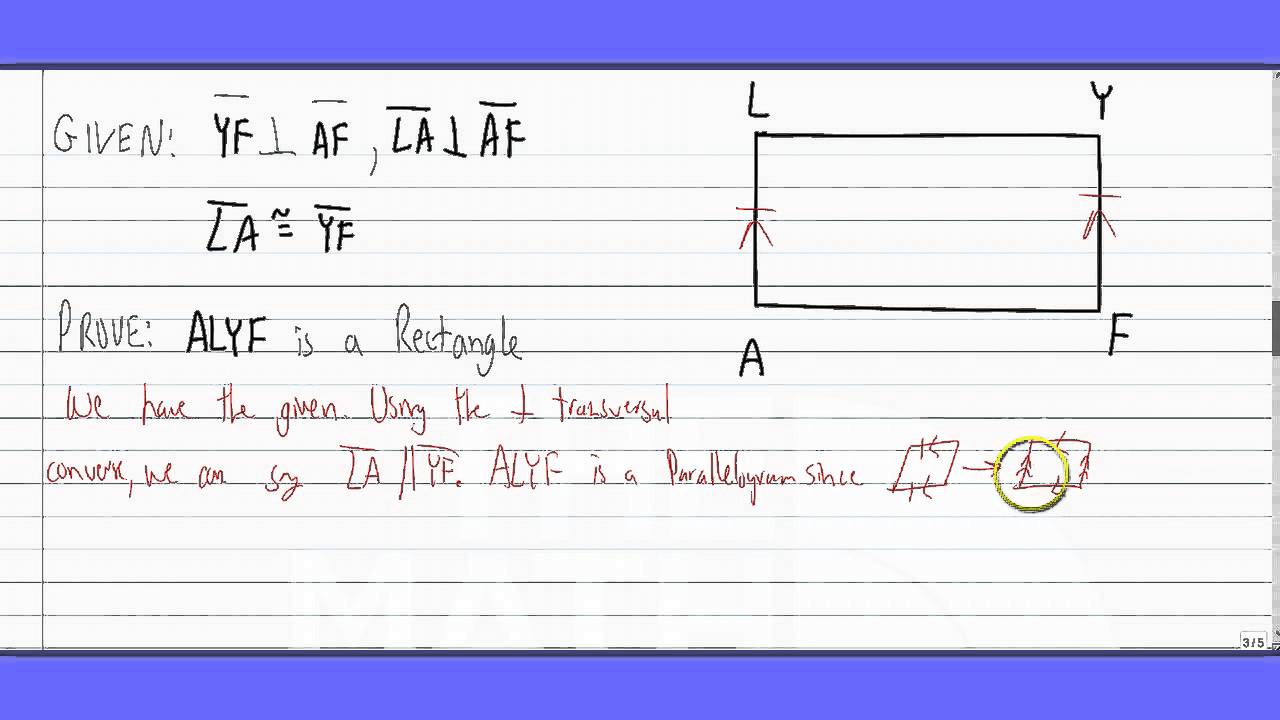 L Y
GIVEN: YF ⊥ AF, LA ⊥ AF
LA ≅ YF
PROVE: ALYF is a Rectangle
A F
We have the given. Using the ⊥ transversal
converse, we can say LA // YF. ALYF is a Parallelogram since
3/5